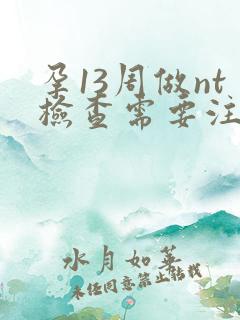 孕13周做nt
檢查需要注
水月如華
未经同意禁止转载